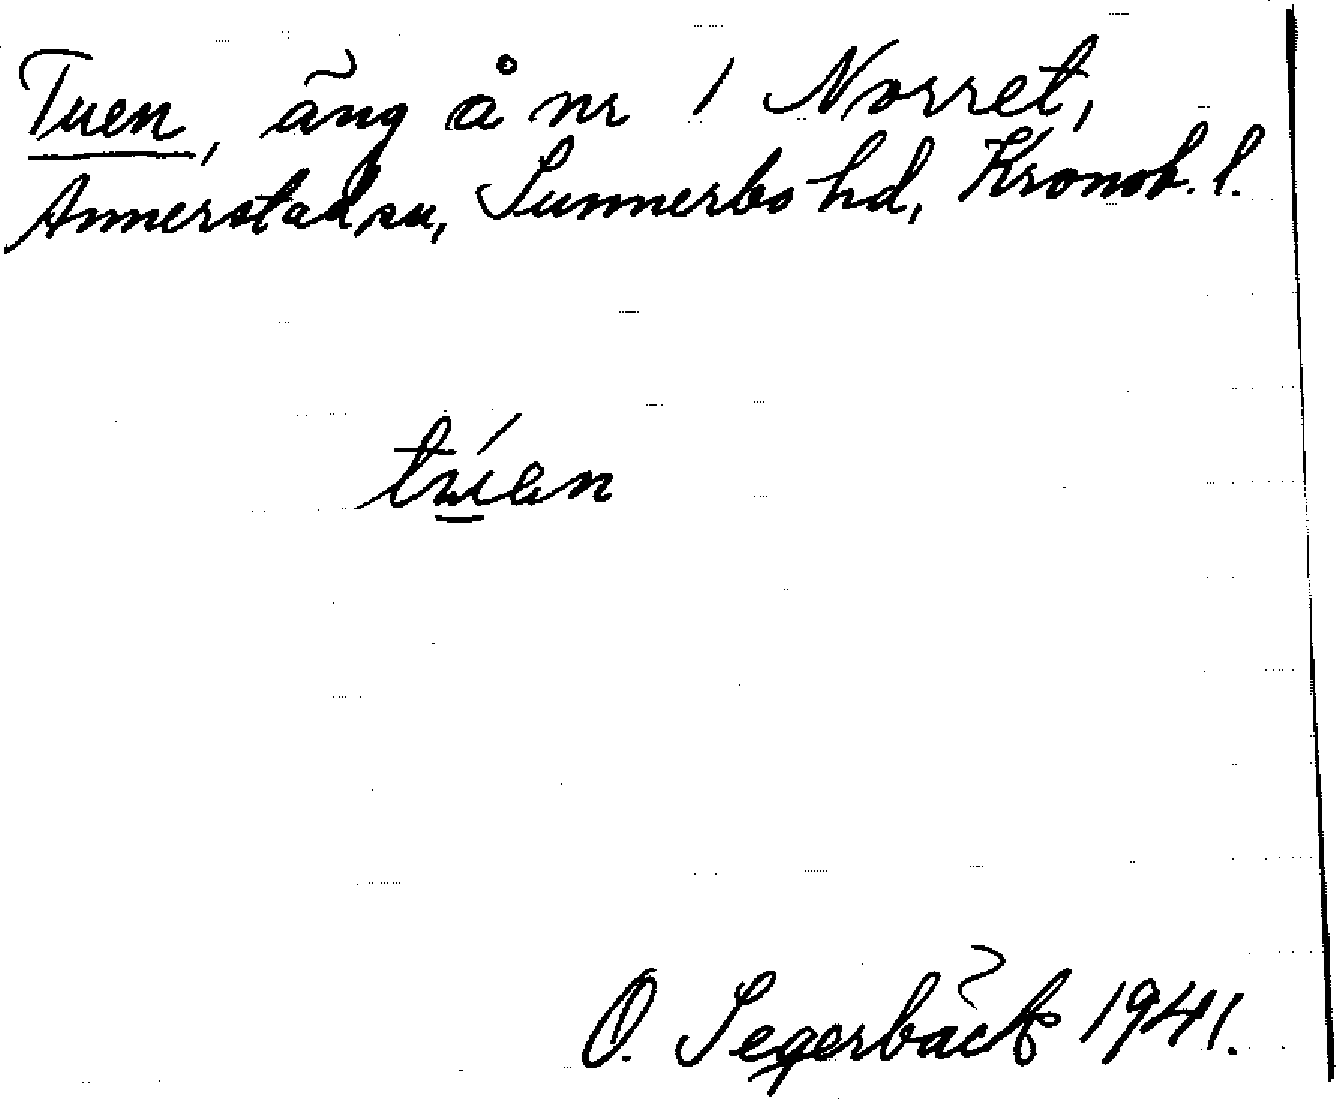 Tuen, äng å nr 1 Norret,
Annerstad sn, Sunnerbo hd, Kronob. l.
túen
O. Segerbäck 1941.